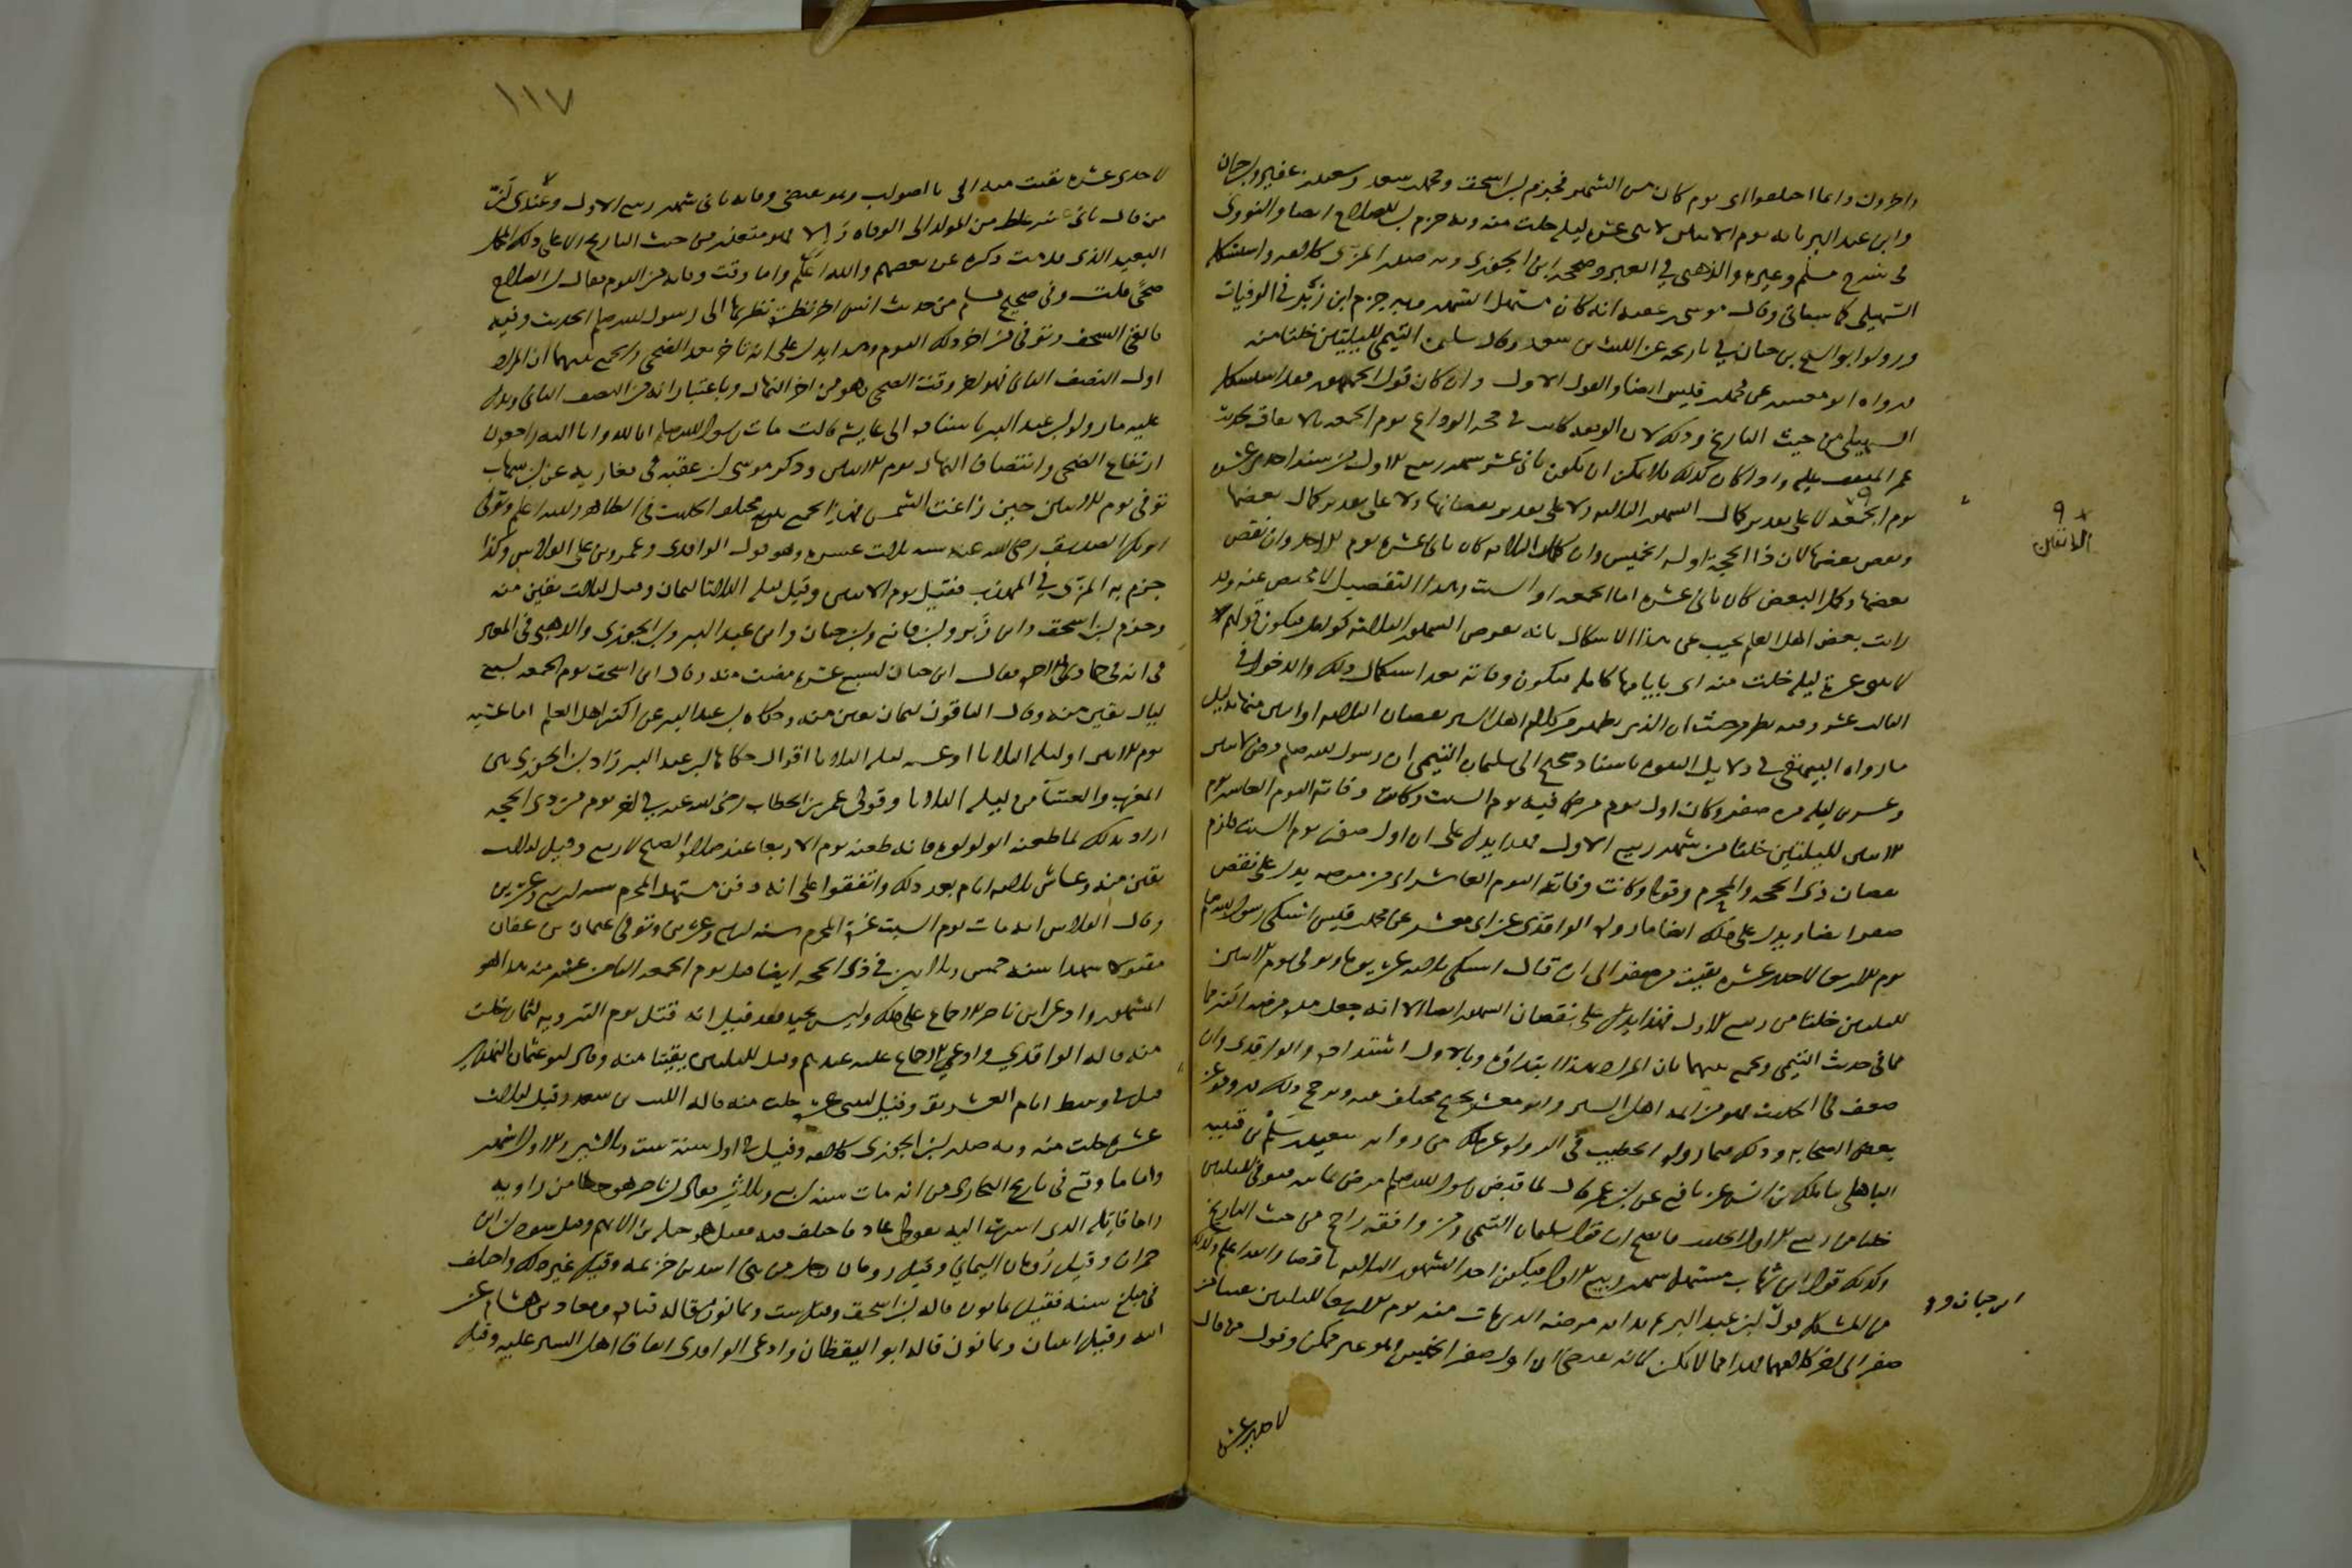 واخرون وانما اختلفوا اى يوم كان من الشهر فجزم ابن اسحق ومحمد بن سعد وسعيد بن عفير وابن حبان
وابن عبد البر بانه يوم الاثنين لاثنى عشرة ليلة خلت منه وبه جزم ابن الصلاح ايضا والنووى
فى شرح مسلم وغيره والذهبى فى العبر وصححه ابن الجوزى وبه صدر المزى كلامه واستشكله
السهيلى كما سياتى وقال موسى بن عقبة انه كان مستهل الشهر وبه جزم ابن زبر فى الوفيات
ورواه ابو الشيخ بن حيان فى تاريخه عن الليث بن سعد وقال سليمن التيمى لليلتين خلتا منه
ورواه ابو معشر عن محمد بن قيس ايضا والقول الاول وان كان قول الجمهور فقد استشكله
السهيلى من حيث التاريخ وذلك لان الوقفة كانت فى حجة الوداع يوم الجمعة بالاتفاق لحديث
عمر المتفق عليه واذا كان كذلك فلا يمكن ان يكون ثانى عشر شهر ربيع الاول من سنة احدى عشرة
يوم الجمعة لا على تقدير كمال الشهور الثلاثة ولا على تقدير نقصانها ولا على تقدير كمال بعضها
ونقص بعضها لان ذا الحجة اوله الخميس وان كمل الثلاثة كان ثانى عشره يوم الاحد وان نقص
بعضها وكمل البعض كان ثانى عشره اما الجمعة او السبت وهذا التفصيل لا محيص عنه وقد
رايت بعض اهل العلم يجيب عن هذا الاشكال بانه تفرض الشهور الثلاثة كوامل فيكون قولهم
لاثنى عشرة ليلة خلت منه اى بايامها كاملة فيكون وفاته بعد استكمال ذلك والدخول فى
الثالث عشر وفيه نظر من حيث ان الذى يظهر من كلام اهل السير نقصان الثلاثة او اثنين منها بدليل
ما رواه البيهقى فى دلايل النبوة باسناد صحيح الى سليمان التيمى ان رسول الله صلعم مرض لاثنين
وعشرين ليلة من صفر وكان اول يوم مرض فيه يوم السبت وكانت وفاته اليوم العاشر يوم
الاثنين لليلتين خلتا من شهر ربيع الاول فهذا يدل على ان اول صفر يوم السبت فلزم
نقصان ذى الحجة والمحرم وقوله وكانت وفاته اليوم العاشر اى من مرضه يدل على نقص
صفر ايضا ويدل على ذلك ايضا ما رواه الواقدى عن ابى معشر عن محمد بن قيس اشتكى رسول الله صلعم
يوم الاربعا لاحدى عشرة بقيت من صفر الى ان قال اشتكى ثلاثة عشر يوما وتوفى يوم الاثنين
لليلتين خلتا من ربيع الاول فهذا يدل على نقصان الشهور ايضا الا انه جعل مدة مرضه اكثر مما
فى حديث التيمى ويجمع بينهما بان المراد بهذا ابتداؤه وبالاول اشتداده والواقدى وان
ضعف فى الحديث فهو من ائمة اهل السير وابو معشر نجيح مختلف فيه ويرجح ذلك وروده عن
بعض الصحابة وذلك فيما رواه الخطيب فى الرواة عن مالك من رواية سعيد بن سلم بن قتيبة
الباهلى ثنا مالك بن انس عن نافع عن ابن عمر قال لما قبض رسول الله صلعم مرض ثمانية فتوفى لليلتين
خلتا من ربيع الاول الحديث فاتضح ان قول سليمان التيمى ومن وافقه راجح من حيث التاريخ
وكذلك قول ابن شهاب مستهل شهر ربيع الاول فيكون احد الشهور الثلاثة ناقصا والله اعلم وكذلك
من المشكل قول ابن عبد البر ثم بدا به مرضه الذى مات منه يوم الاربعا لليلتين بقيتا من
صفر الى اخر كلامهما فهذا مما لا يمكن لانه يقتضى ان اول صفر الخميس وهو غير ممكن وقول من قال
لاحدى عشرة
الاثنين
ابن حبان و
١١٧
لاحدى عشرة بقيت منه الى بالصواب وهو مقتضى وفاته ثانى شهر ربيع الاول وعندى لان
من قال ثانى عشر غلط من المولد الى الوفاة والا فهو متعذر من حيث التاريخ الا على ذلك المحمل
البعيد الذى قدمت ذكره عن بعضهم والله اعلم واما وقت وفاته من اليوم فقال ابن الصلاح
ضحى قلت وفى صحيح مسلم من حديث انس اخر نظرة نظرتها الى رسول الله صلعم الحديث وفيه
فالقى السجف وتوفى من اخر ذلك اليوم وهذا يدل على انه تاخر بعد الضحى والجمع بينهما ان المراد
اول النصف الثانى فهو اخر وقت الضحى وهو من اخر النهار وباعتبار انه من النصف الثانى ويدل
عليه ما رواه ابن عبد البر باسناده الى عايشة قالت مات رسول الله صلعم انا لله وانا اليه راجعون
ارتفاع الضحى وانتصاف النهار يوم الاثنين وذكر موسى بن عقبة فى مغازيه عن ابن شهاب
توفى يوم الاثنين حين زاغت الشمس فبهذا يجمع بين مختلف الحديث فى الظاهر والله اعلم وتوفى
ابو بكر الصديق رضى الله عنه سنة ثلاث عشرة وهو قول الواقدى وعمرو بن على الفلاس وكذا
جزم به المزى فى التهذيب فقيل يوم الاثنين وقيل ليلة الثلاثا لثمان وقيل لثلاث بقين منه
وجزم ابن اسحق وابن زبر وابن قانع وابن حبان وابن عبد البر وابن الجوزى والذهبى فى العبر
فى انه فى جمادى الاخرة فقال ابن حبان لسبع عشرة مضت منه وقال ابن اسحق يوم الجمعة لسبع
ليال بقين منه وقال الباقون لثمان بقين منه وحكاه ابن عبد البر عن اكثر اهل العلم اما عشية
يوم الاثنين او ليلة الثلاثا او عشية ليلة الثلاثا اقوال حكاها ابن عبد البر زاد ابن الجوزى بين
المغرب والعشا من ليلة الثلاثا وتوفى عمر بن الخطاب رضى الله عنه فى اخر يوم من ذى الحجة
اراد بذلك لما طعنه ابو لولوة فانه طعنه يوم الاربعا عند صلاة الصبح لاربع وقيل لثلاث
بقين منه وعاش ثلاثة ايام بعد ذلك واتفقوا على انه دفن مستهل المحرم سنة اربع وعشرين
وقال الفلاس انه مات يوم السبت غرة المحرم سنة اربع وعشرين وتوفى عثمان بن عفان
مقتولا شهيدا سنة خمس وثلاثين فى ذى الحجة ايضا قيل يوم الجمعة الثامن عشر منه هذا هو
المشهور وادعى ابن ناصر الاجماع على ذلك وليس بجيد فقد قيل انه قتل يوم التروية لثمان خلت
منه قاله الواقدى وادعى الاجماع عليه عندهم وقيل لليلتين بقيتا منه وقال ابو عثمان النهدى
قتل فى وسط ايام التشريق وقيل لثنتى عشرة خلت منه قاله الليث بن سعد وقيل لثلاث
عشرة خلت منه وبه صدر ابن الجوزى كلامه وقيل فى اول سنة ست وثلاثين والاول اشهر
واما ما وقع فى تاريخ البخارى من انه مات سنة اربع وثلاثين فقال ابن ناصر هو خطا من راويه
واما قاتله الذى اشرت اليه بقولى عاد فاختلف فيه فقيل هو جبلة بن الايهم وقيل سودان بن
حمران وقيل رومان اليمانى وقيل رومان رجل من بنى اسد بن خزيمة وقيل غير ذلك واختلف
فى مبلغ سنه فقيل ثمانون قاله ابن اسحق وقيل ست وثمانون قاله قتادة ومعاذ بن هشام عن
ابيه وقيل اثنتان وثمانون قاله ابو اليقظان وادعى الواقدى اتفاق اهل السير عليه وقيل